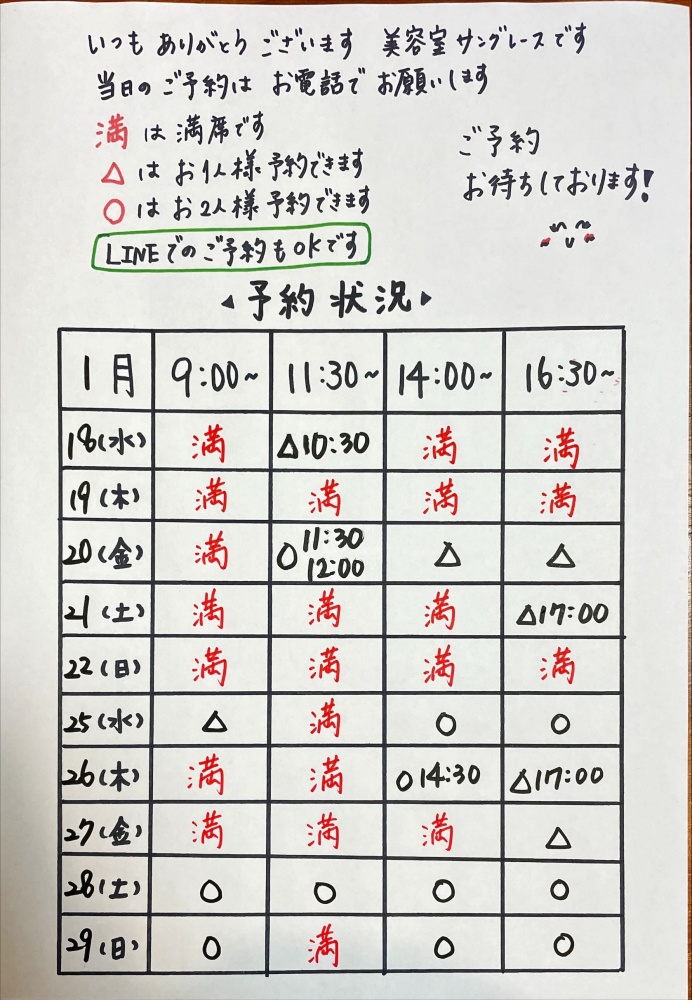 いつも ありがとうございます 美容室サングレースです
当日のご予約は お電話で お願いします
満 は 満席です
△ は お1人様 予約できます
○ は お2人様 予約できます
LINEでのご予約もOKです
ご予約
お待ちしております!
◂予約状況▸
1月 9:00~ 11:30~ 14:00~ 16:30~
18(水) 満 △10:30 満 満
19(木) 満 満 満 満
20(金) 満 ○11:30 12:00 △ △
21(土) 満 満 満 △17:00
22(日) 満 満 満 満
25(水) △ 満 ○ ○
26(木) 満 満 ○14:30 △17:00
27(金) 満 満 満 △
28(土) ○ ○ ○ ○
29(日) ○ 満 ○ ○